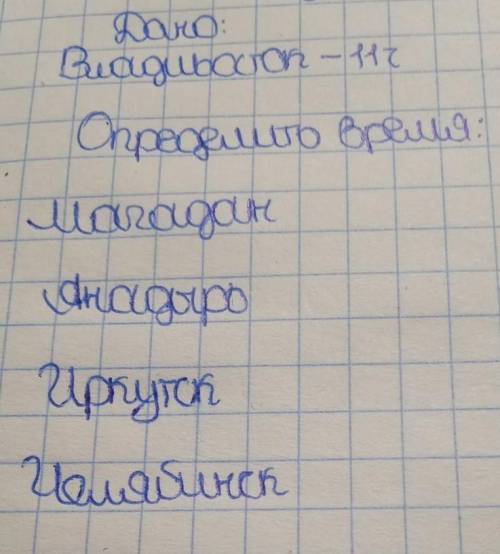 Дано:
Владивосток - 11 ч
Определить время:
Магадан
Анадырь
Иркутск
Челябинск